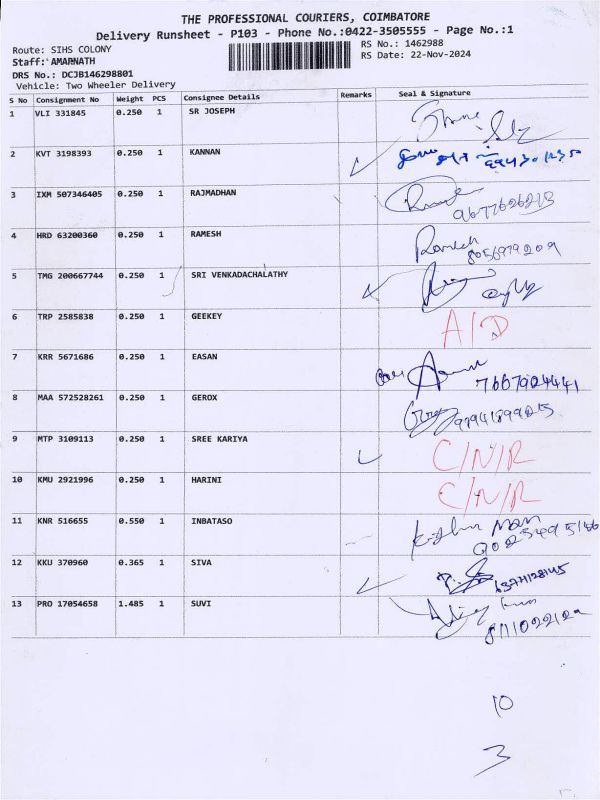 THE PROFESSIONAL COURIERS, COIMBATORE
Delivery Runsheet - P103 - Phone No.:0422-3505555 - Page No.:1
Route: SIHS COLONY
RS No.: 1462988
Staff: AMARNATH
RS Date: 22-Nov-2024
DRS No.: DCJB146298801
Vehicle: Two Wheeler Delivery
S No Consignment No Weight PCS Consignee Details Remarks Seal & Signature
1 VLI 331845 0.250 1 SR JOSEPH
2 KVT 3198393 0.250 1 KANNAN
3 IXM 507346405 0.250 1 RAJMADHAN
9677626213
4 HRD 63200360 0.250 1 RAMESH Ramesh
8056979209
5 TMG 200667744 0.250 1 SRI VENKADACHALATHY
6 TRP 2585838 0.250 1 GEEKEY A/D
7 KRR 5671686 0.250 1 EASAN
7667924441
8 MAA 572528261 0.250 1 GEROX
9 MTP 3109113 0.250 1 SREE KARIYA C/N/R
10 KMU 2921996 0.250 1 HARINI C/N/R
11 KNR 516655 0.550 1 INBATASO
12 KKU 370960 0.365 1 SIVA
13 PRO 17054658 1.485 1 SUVI
10
3